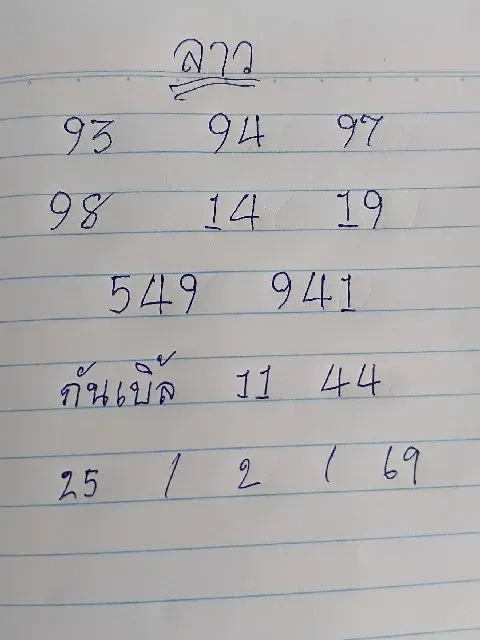 ลาว
93 94 97
98 14 19
549 941
กันเบิ้ล 11 44
25 / 2 / 69